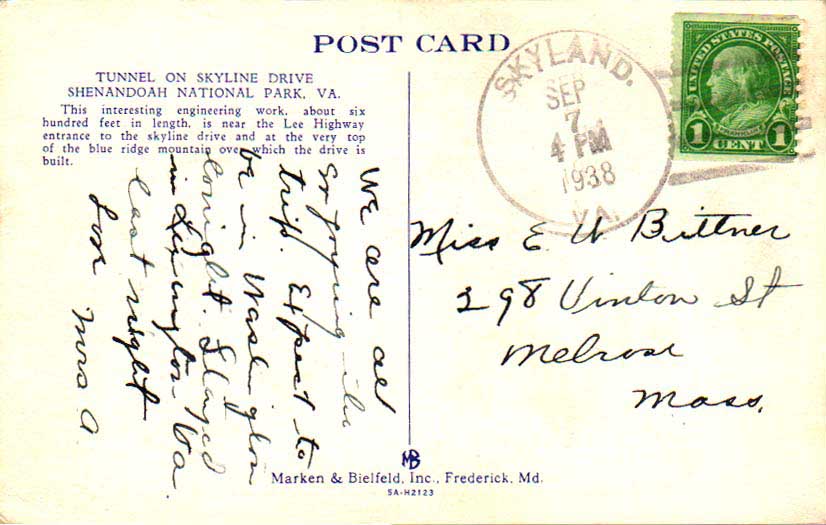 POST CARD
TUNNEL ON SKYLINE DRIVE
SHENANDOAH NATIONAL PARK, VA.
This interesting engineering work, about six
hundred feet in length, is near the Lee Highway
entrance to the skyline drive and at the very top
of the blue ridge mountain over which the drive is
built.
We are all
enjoying the
trip. Expect to
be in Washington
tonight. Stayed
in Lexington Va.
last night
Love Mora A.
SKYLAND.
SEP
7
4 PM
1938
VA.
UNITED STATES POSTAGE
FRANKLIN
1 CENT 1
Miss E W Bittner
298 Vinton St
Melrose
Mass.
MB
Marken & Bielfeld, Inc., Frederick, Md.
5A-H2123